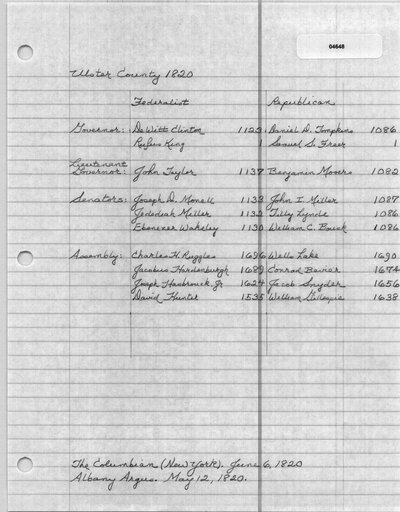 04648
Ulster County 1820
Federalist Republican
Governor: De Witt Clinton 1123 Daniel D. Tompkins 1086
Rufus King 1 Samuel S. Freer 1
Lieutenant
Governor: John Taylor 1137 Benjamin Mooers 1082
Senators: Joseph D. Monell 1133 John I. Miller 1087
Jedediah Miller 1132 Tilly Lynde 1086
Ebenezer Wakeley 1130 William C. Bouck 1086
Assembly: Charles H. Ruggles 1696 Wells Lake 1690
Jacobus Hardenburgh 1689 Conrad Bevier 1674
Joseph Hasbrouck Jr. 1624 Jacob Snyder 1656
David Hunter 1535 William Gillespie 1638
The Columbian (New York). June 6, 1820
Albany Argus. May 12, 1820.